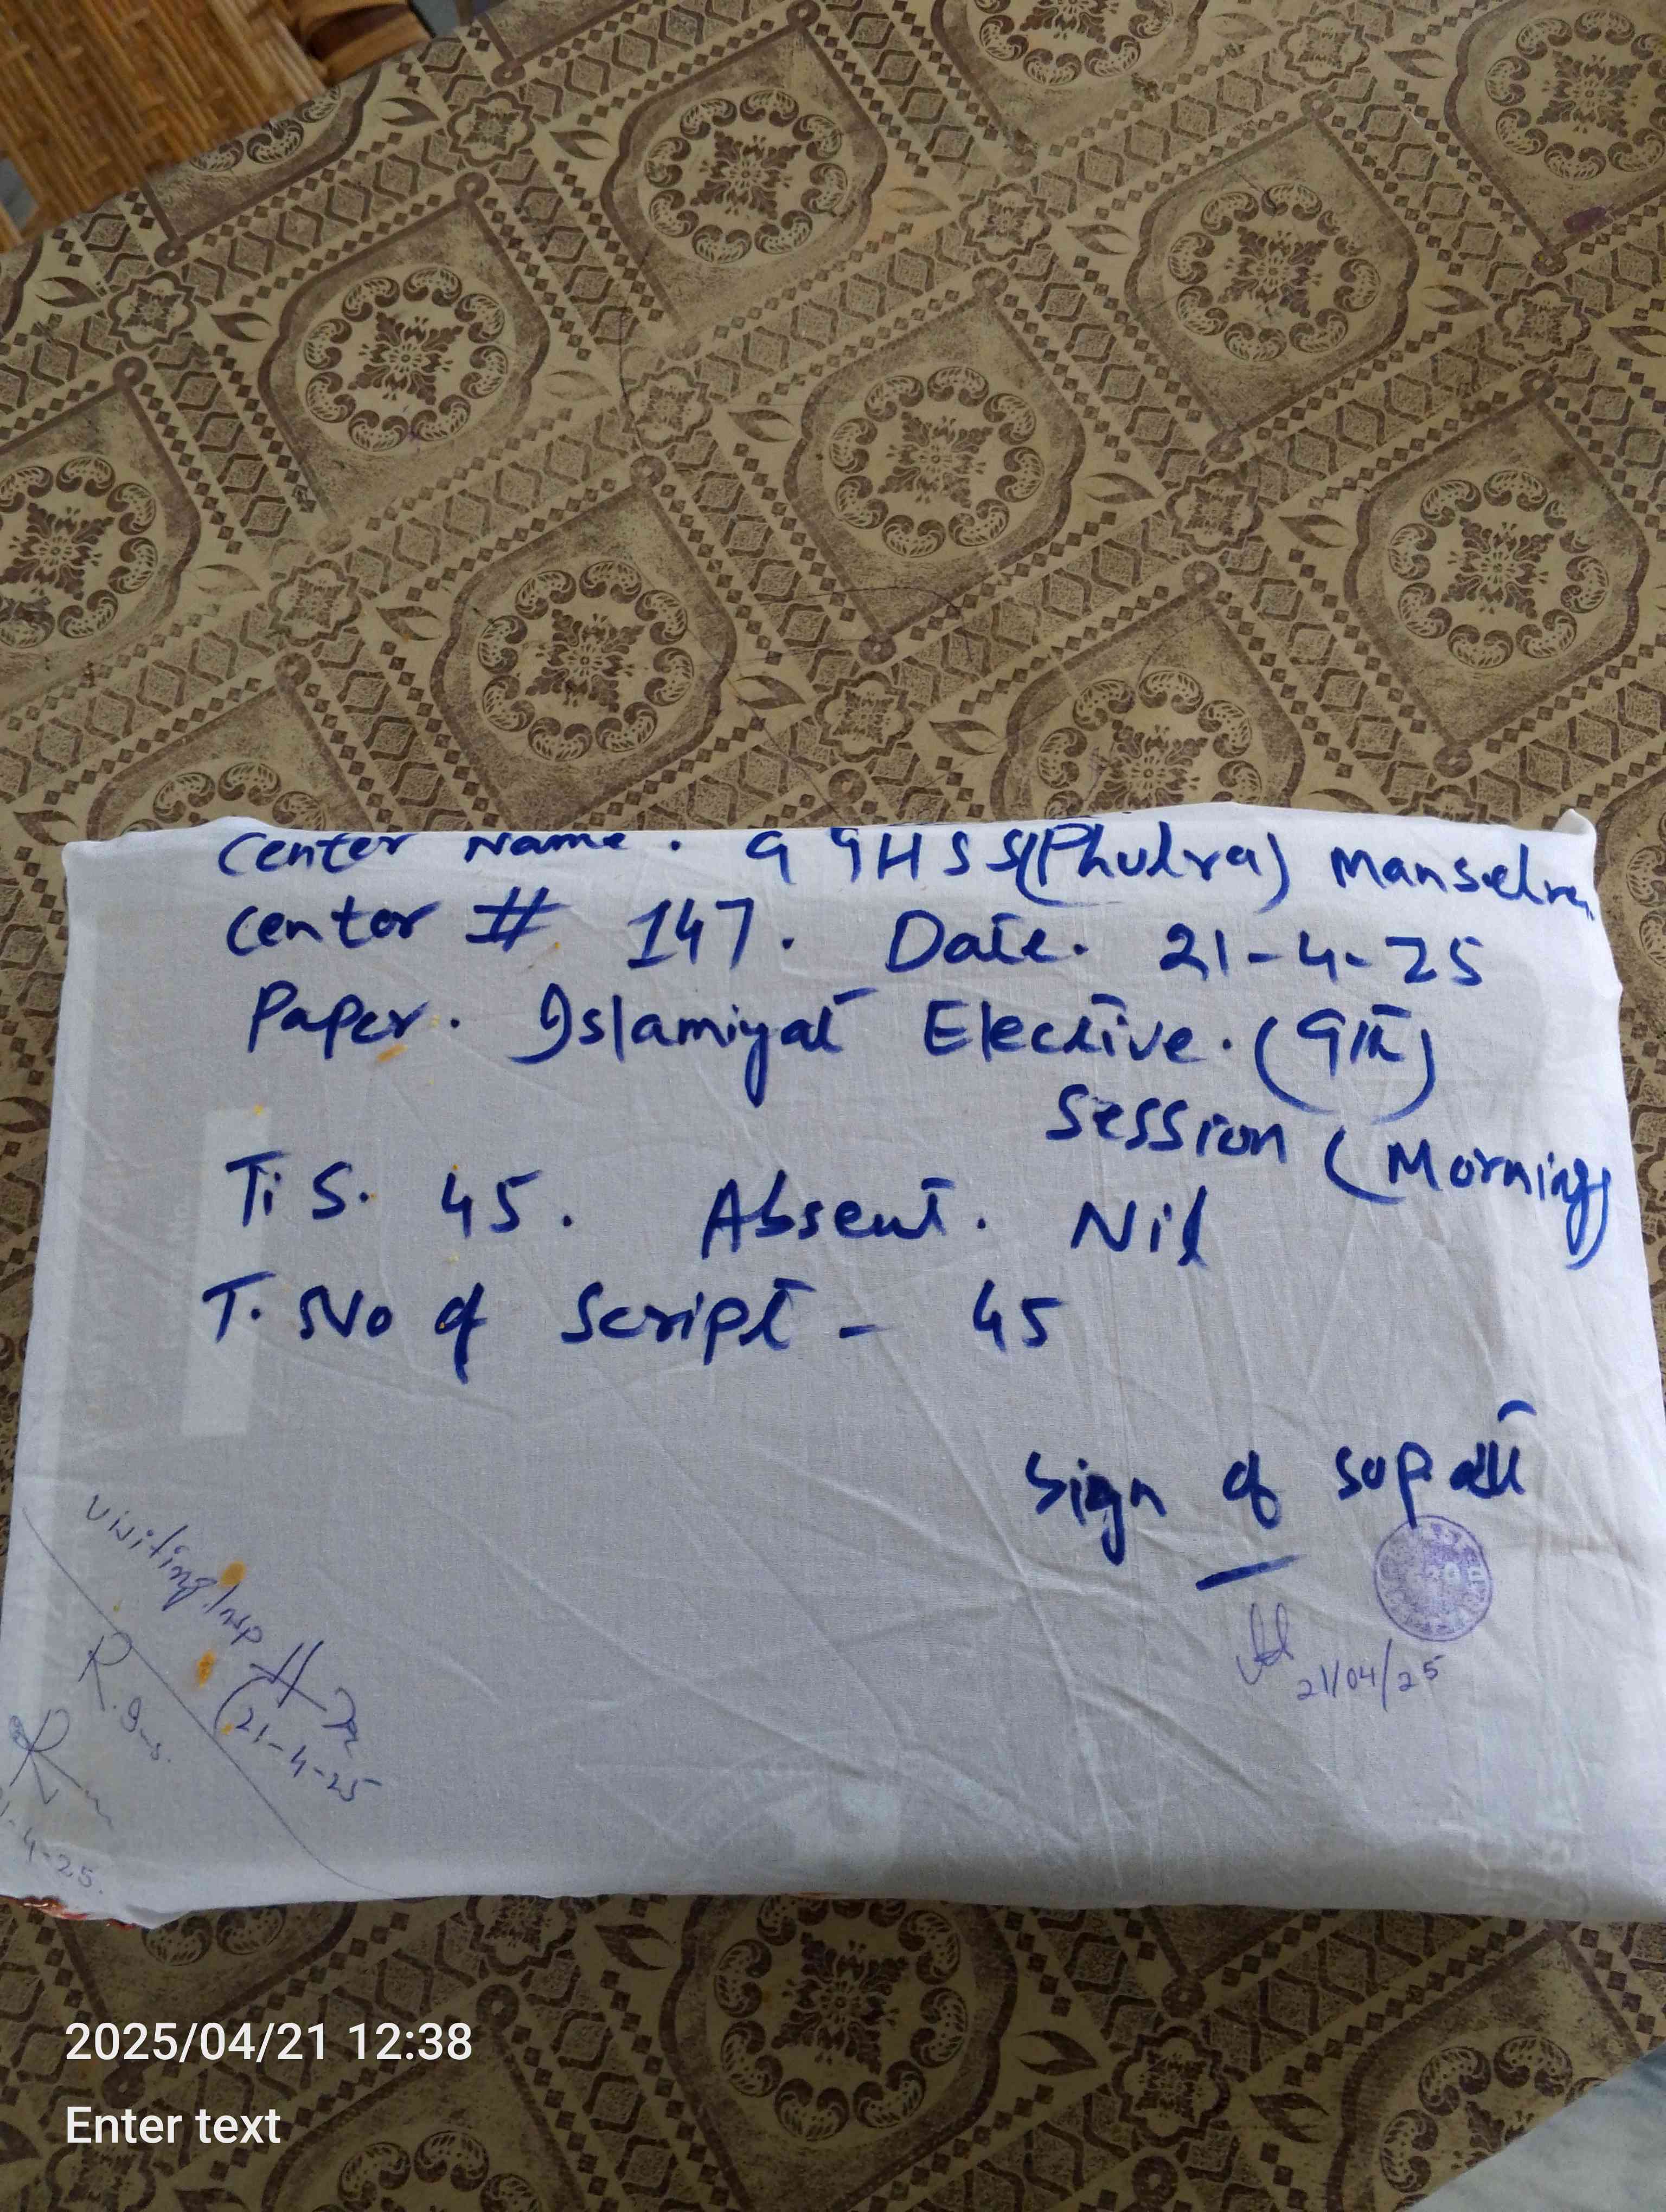 Center Name. GGHSS(Phulra) Mansehra
Center # 147. Date. 21-4-25
Paper. Islamiyat Elective. (9th)
Session (Morning)
T.S. 45. Absent. Nil
T. No of Script - 45
Sign of Sup dtt
21/04/25
Visiting Insp
(21-4-25
R. Ins.
4-25.
2025/04/21 12:38
Enter text